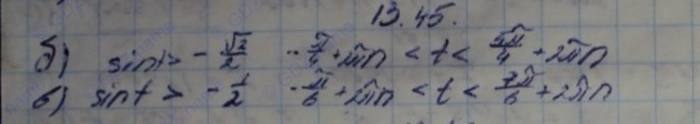 13.45.
б) sin t > -√2/2 -π/4 + 2πn < t < 5π/4 + 2πn
в) sin t > -1/2 -π/6 + 2πn < t < 7π/6 + 2πn